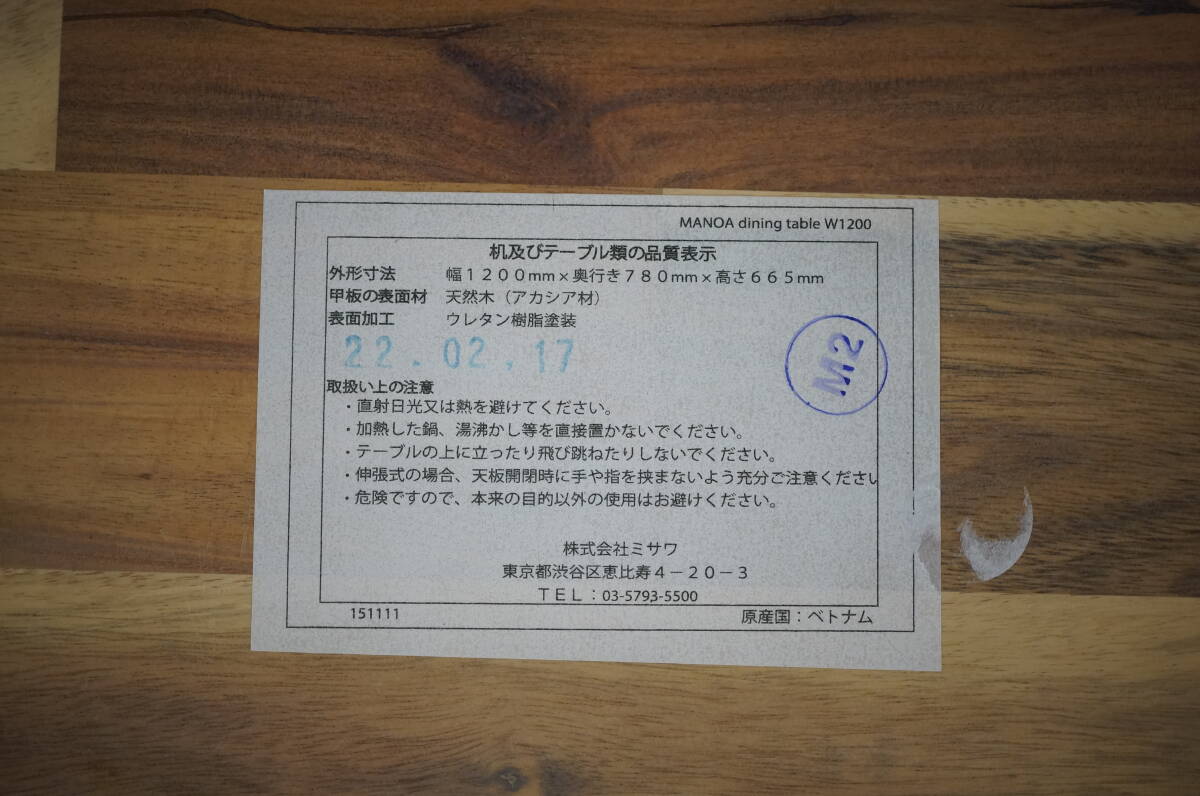 MANOA dining table W1200
机及びテーブル類の品質表示
外形寸法 幅１２００mm×奥行き７８０mm×高さ６６５mm
甲板の表面材 天然木（アカシア材）
表面加工 ウレタン樹脂塗装
22.02.17
M2
取扱い上の注意
・直射日光又は熱を避けてください。
・加熱した鍋、湯沸かし等を直接置かないでください。
・テーブルの上に立ったり飛び跳ねたりしないでください。
・伸張式の場合、天板開閉時に手や指を挟まないよう充分ご注意ください
・危険ですので、本来の目的以外の使用はお避けください。
株式会社ミサワ
東京都渋谷区恵比寿４－２０－３
ＴＥＬ：03-5793-5500
151111 原産国：ベトナム